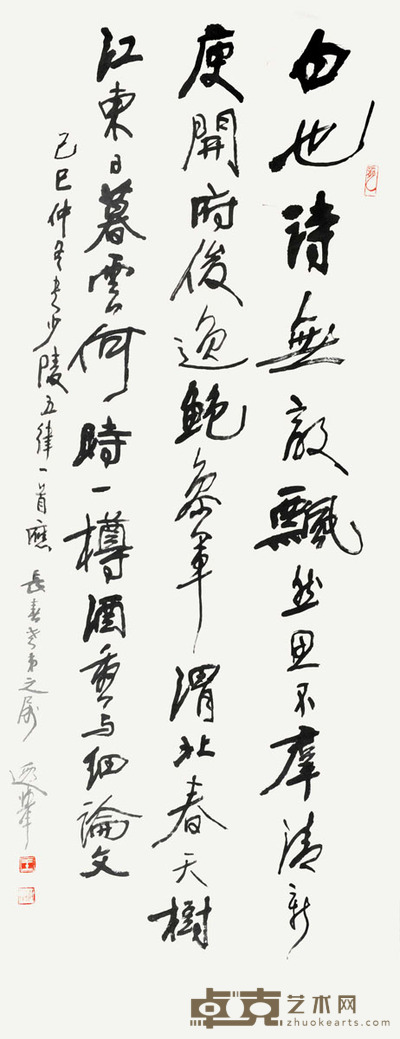 白也詩無敵飄然思不羣清新
庾開府俊逸鮑参軍渭北春天樹
江東日暮雲何時一樽酒重与细論文
己巳仲冬書少陵五律一首應
長春老弟之属
卓克艺术网
zhuokearts.com